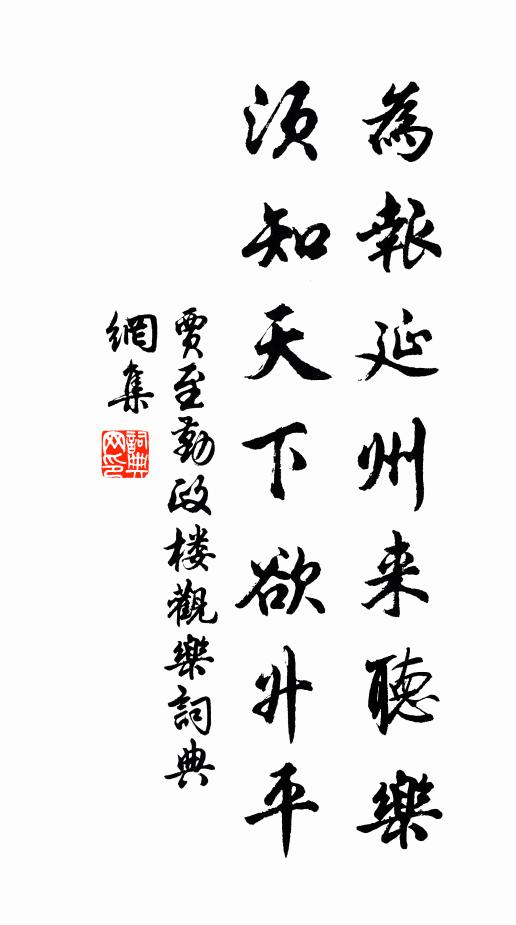 為報延州来聽樂
須知天下欲升平
賈至勤政楼觀樂詞典
網集
詞典网印